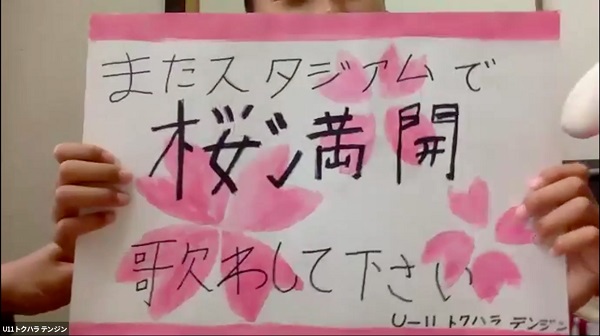 またスタジアムで
桜満開
歌わして下さい
U-11 トクハラ テンジン
U11 トクハラ テンジン